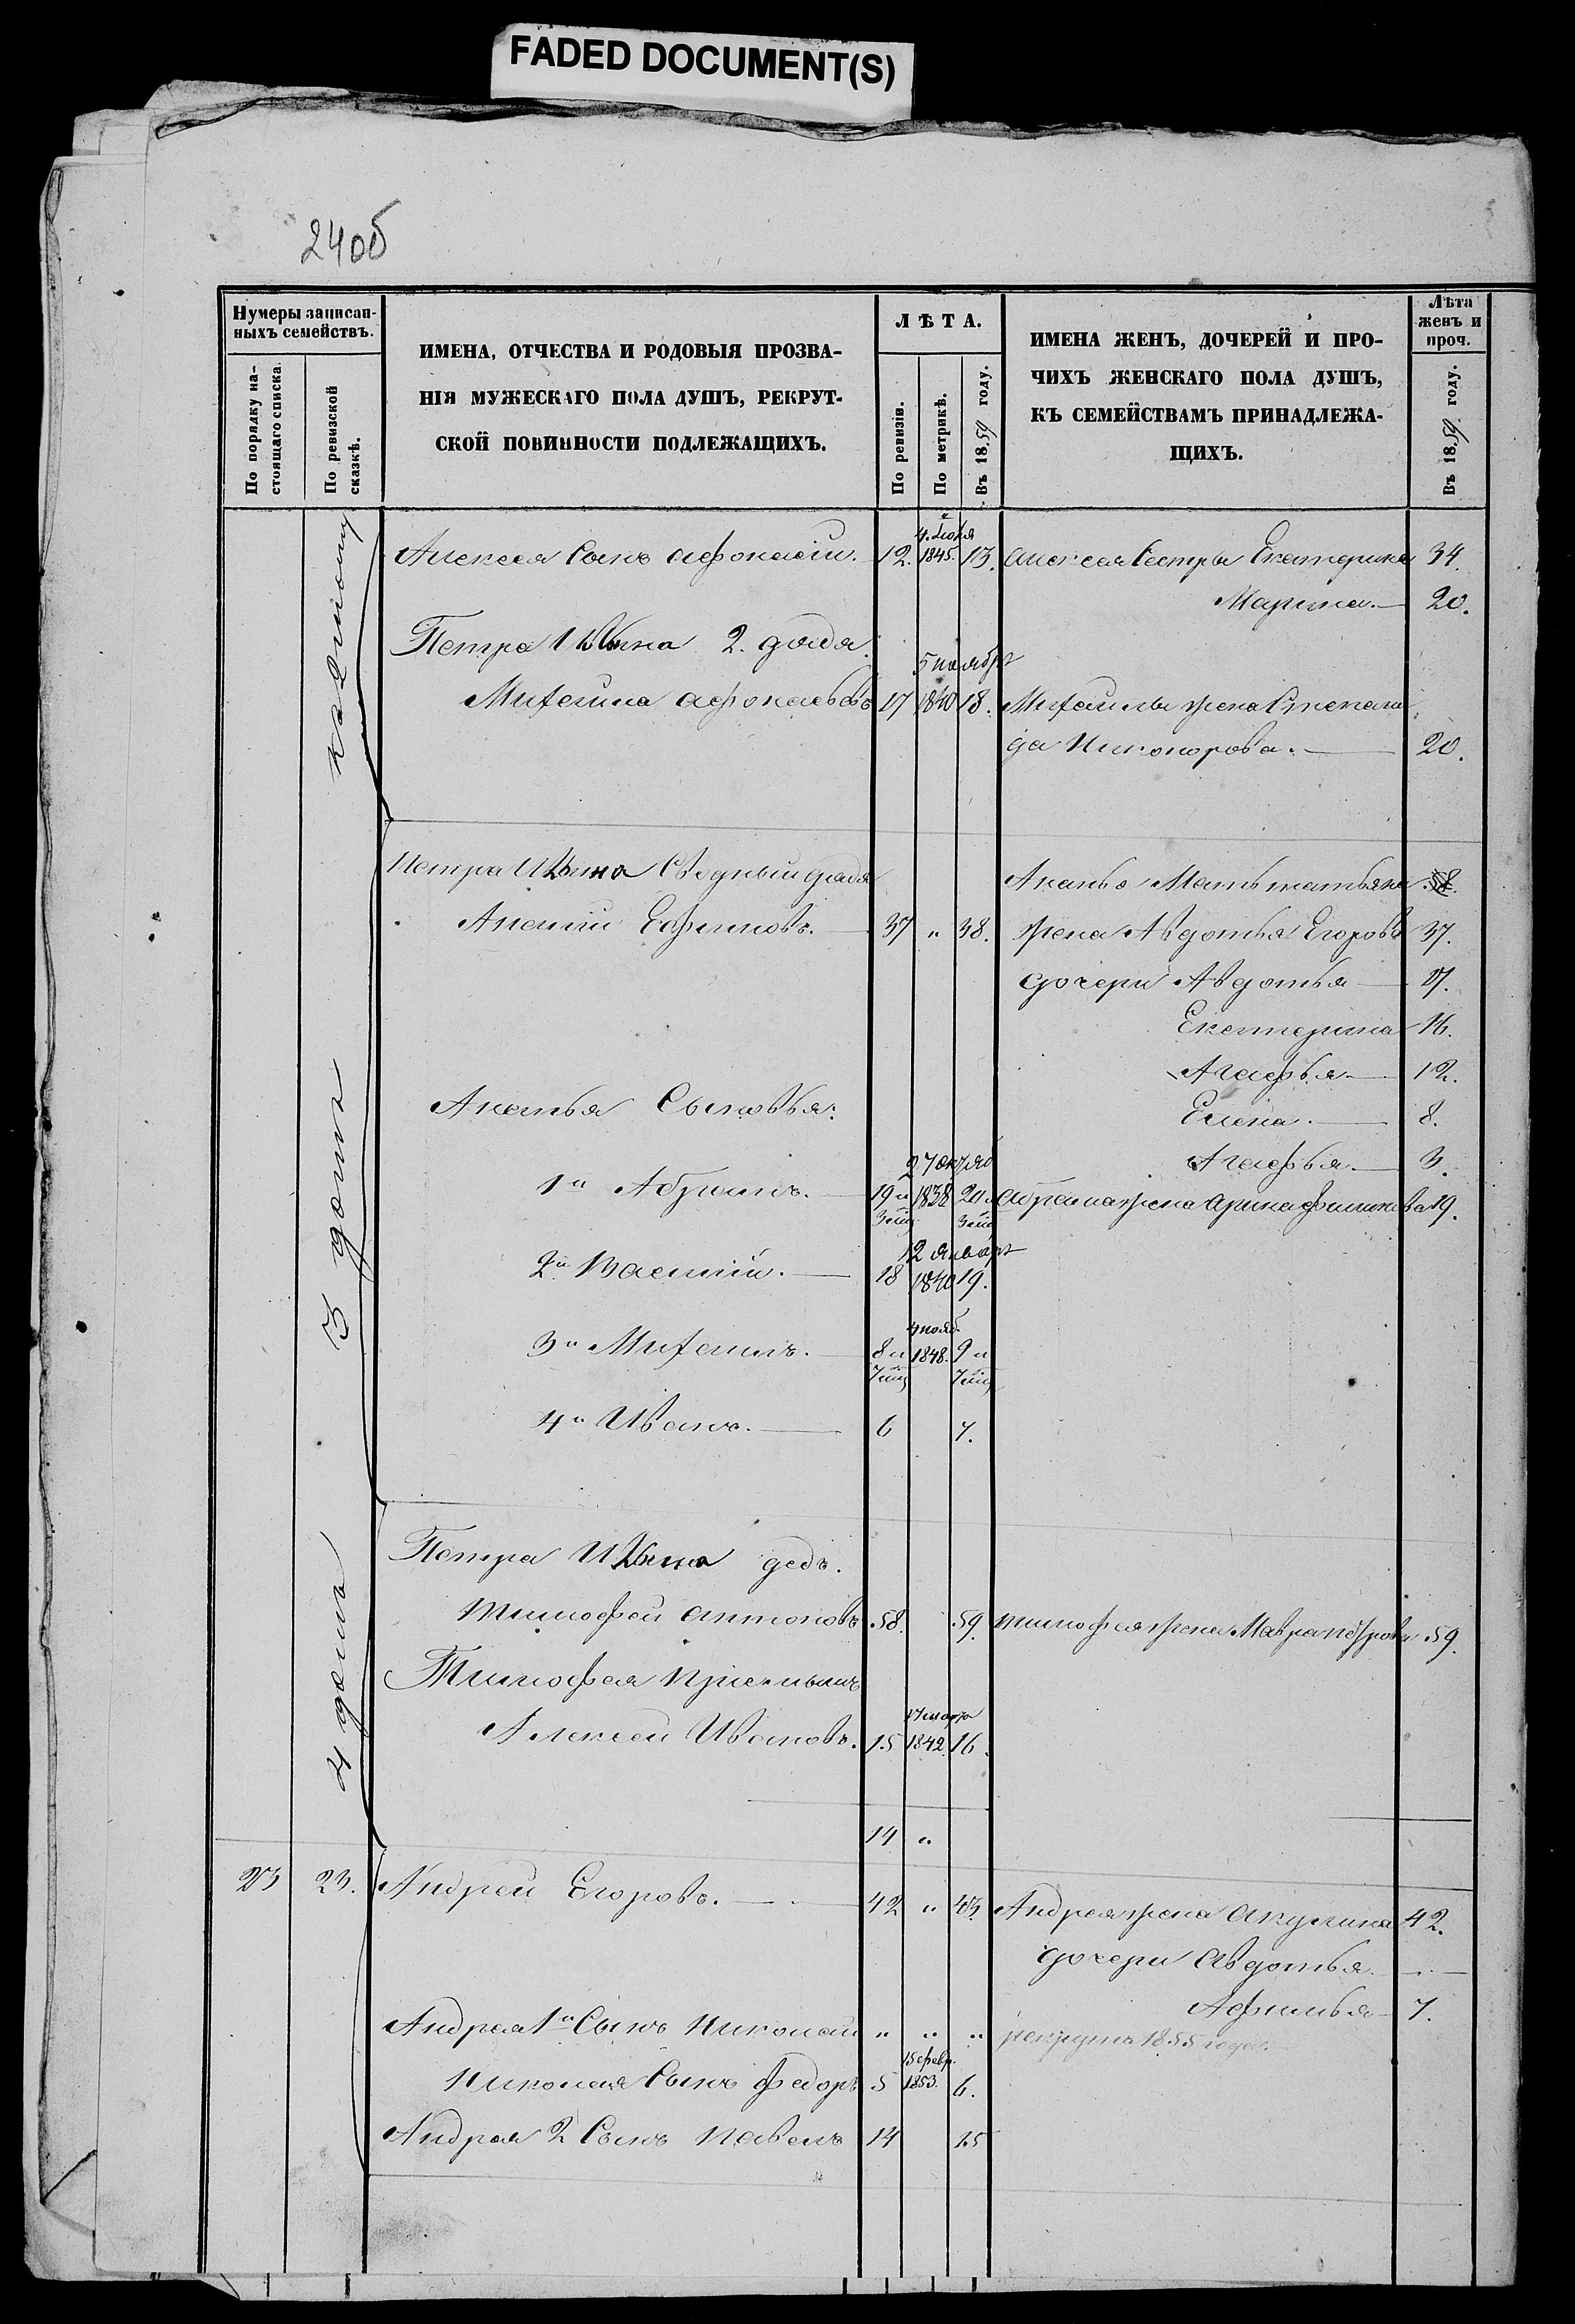 FADED DOCUMENT(S)
240б
Нумеры записан-
ныхъ семействъ.
По порядку на-
стоящаго списка.
По ревизской
сказкѣ.
ИМЕНА, ОТЧЕСТВА И РОДОВЫЯ ПРОЗВА-
НІЯ МУЖЕСКАГО ПОЛА ДУШЪ, РЕКРУТ-
СКОЙ ПОВИННОСТИ ПОДЛЕЖАЩИХЪ.
ЛѢТА.
По ревизіи.
По метрикѣ.
Въ 1859 году.
ИМЕНА ЖЕНЪ, ДОЧЕРЕЙ И ПРО-
ЧИХЪ ЖЕНСКАГО ПОЛА ДУШЪ,
КЪ СЕМЕЙСТВАМЪ ПРИНАДЛЕЖА-
ЩИХЪ.
Лѣта
женъ и
проч.
Въ 1859 году.
Алексея Сынъ Афонасій. 12. 1845. 13. Алексея Сестры Екатерина 34.
Марина. 20.
Петра Ильина 2. дядя.
5 ноября
Михаила Афонасьевъ 17 1840 18. Михаилы жена Степани
да Никонорова. 20.
Петра Ильина Сведный дядя Мать 58.
Ефимовъ. 37 " 38. жена Авдотья Егорова 37.
дочери Авдотья 17.
Екатерина 16.
Агафья 12.
Сыновья: Елена. 8.
27 октяб Агафья 3.
1й Абрамъ. 19 и 1838 20 и Абрама жена Арина 19.
12 январ
2й Василій. 18 1840 19.
4 нояб.
3й Михаилъ. 8 и 1848. 9 и
4й Иванъ. 6 7.
3 домъ
Петра Ильина дедъ.
Тимофей Антоновъ 58. 59. Тимофея жена Мавра Петрова 59.
Тимофея приемышъ
17 марта
Алексей Ивановъ. 15 1842. 16.
4 домъ
14 "
23 23. Андрей Егоровъ. 42 " 43. Андрея жена Акулина 42.
дочери Авдотья
Афимья 7.
Андрея 1й Сынъ Николай " " " рекрутъ 1855 года.
15 февр.
Николая Сынъ Федоръ 5 1853. 6.
Андрея 2 Сынъ Павелъ 14 15